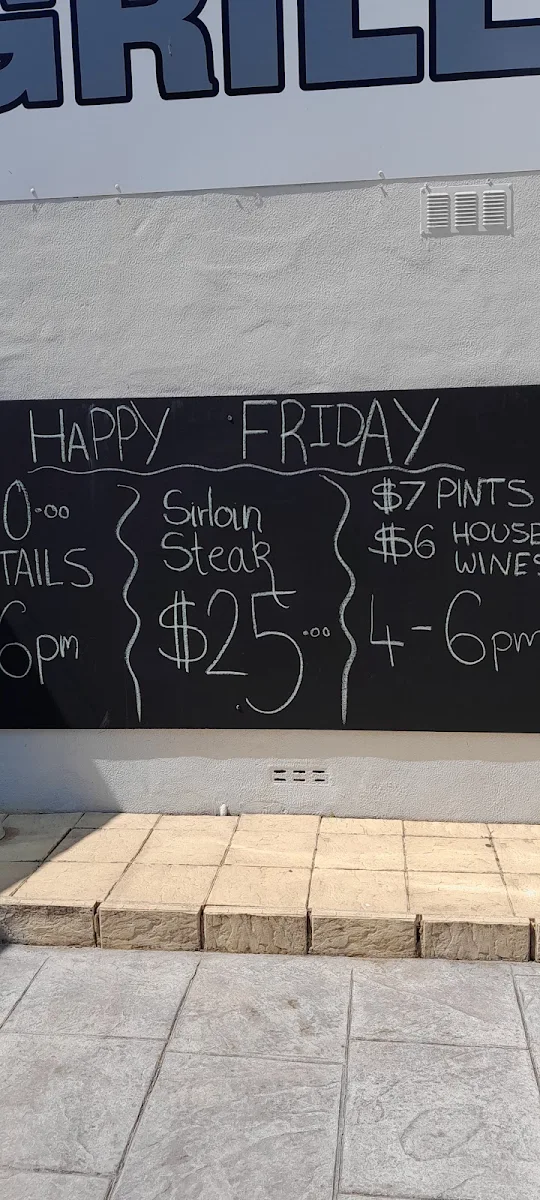 GRILL
HAPPY FRIDAY
0.00
TAILS
6pm
Sirloin
Steak
$25.00
$7 PINTS
$6 HOUSE
WINES
4-6pm